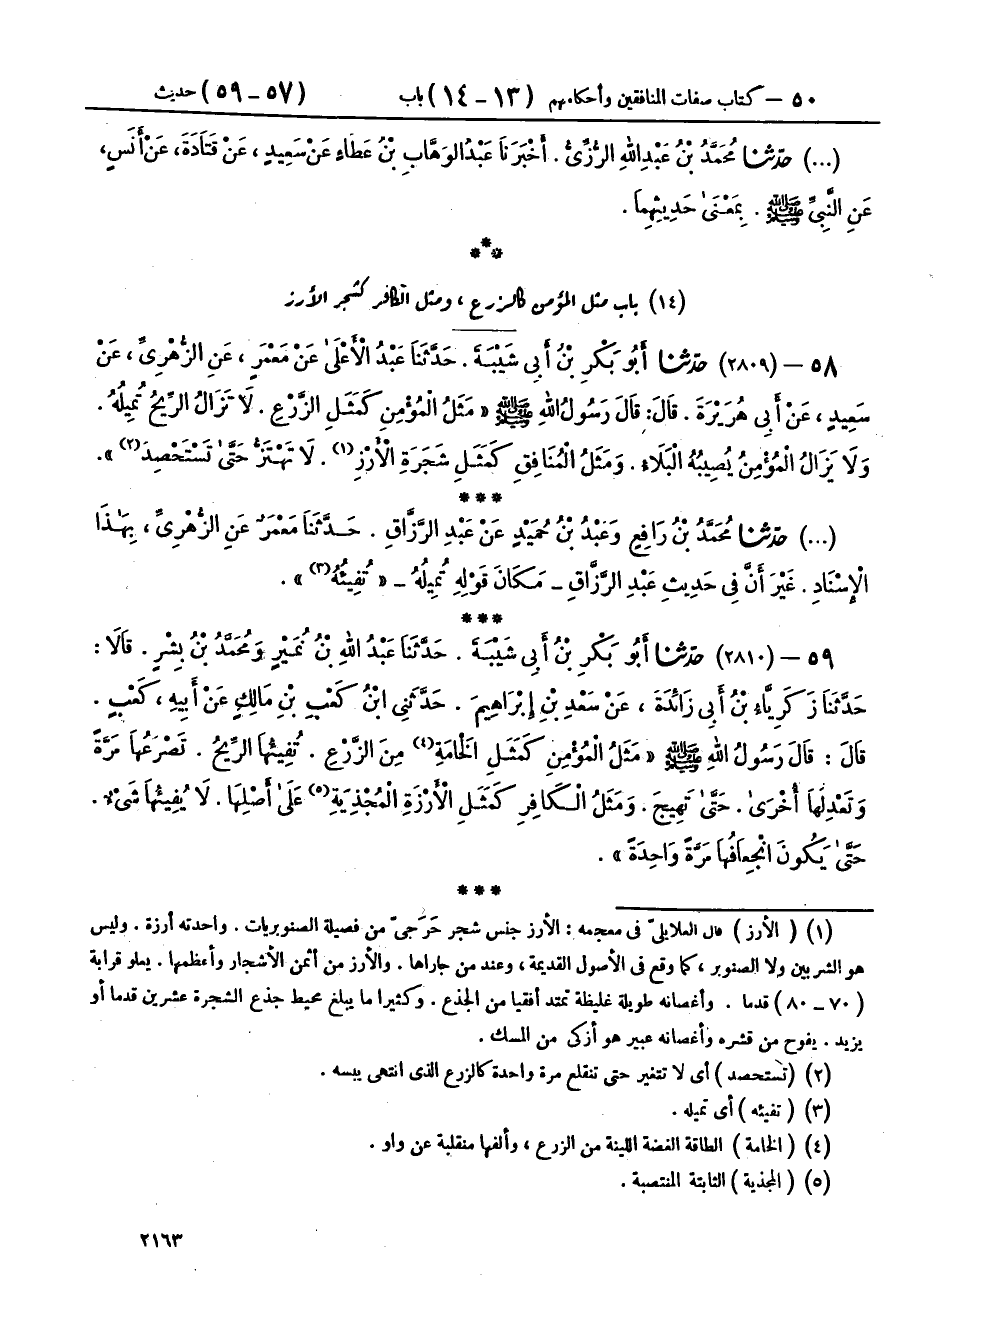 ٥٠ – كتاب صفات المنافقين وأحكامهم (١٣ – ١٤) باب (٥٧ – ٥٩) حديث
(...) حَدَّثَنَا مُحَمَّدُ بْنُ عَبْدِ اللهِ الرُّزِّىُّ. أَخْبَرَنَا عَبْدُ الوَهَّابِ بْنُ عَطَاءٍ عَنْ سَعِيدٍ، عَنْ قَتَادَةَ، عَنْ أَنَسٍ،
عَنِ النَّبِيِّ ﷺ. بِمَعْنَىٰ حَدِيثِهِمَا.
***
(١٤) باب مثل المؤمن كالزرع، ومثل الكافر كشجر الأرز
٥٨ – (٢٨٠٩) حَدَّثَنَا أَبُو بَكْرِ بْنُ أَبِى شَيْبَةَ. حَدَّثَنَا عَبْدُ الْأَعْلَىٰ عَنْ مَعْمَرٍ، عَنِ الزُّهْرِىِّ، عَنْ
سَعِيدٍ، عَنْ أَبِى هُرَيْرَةَ. قَالَ: قَالَ رَسُولُ اللهِ ﷺ «مَثَلُ الْمُؤْمِنِ كَمَثَلِ الزَّرْعِ. لَا تَزَالُ الرِّيحُ تُمِيلُهُ.
وَلَا يَزَالُ الْمُؤْمِنُ يُصِيبُهُ الْبَلَاءُ. وَمَثَلُ الْمُنَافِقِ كَمَثَلِ شَجَرَةِ الْأَرْزِ(١). لَا تَهْتَزُّ حَتَّىٰ تَسْتَحْصِدَ(٢)».
***
(...) حَدَّثَنَا مُحَمَّدُ بْنُ رَافِعٍ وَعَبْدُ بْنُ حُمَيْدٍ عَنْ عَبْدِ الرَّزَّاقِ. حَدَّثَنَا مَعْمَرٌ عَنِ الزُّهْرِىِّ، بِهَٰذَا
الْإِسْنَادِ. غَيْرَ أَنَّ فِى حَدِيثِ عَبْدِ الرَّزَّاقِ – مَكَانَ قَوْلِهِ تُمِيلُهُ – «تُفِيئُهُ(٣)».
***
٥٩ – (٢٨١٠) حَدَّثَنَا أَبُو بَكْرِ بْنُ أَبِى شَيْبَةَ. حَدَّثَنَا عَبْدُ اللهِ بْنُ نُمَيْرٍ وَمُحَمَّدُ بْنُ بِشْرٍ. قَالَا:
حَدَّثَنَا زَكَرِيَّاءُ بْنُ أَبِى زَائِدَةَ، عَنْ سَعْدِ بْنِ إِبْرَاهِيمَ. حَدَّثَنِى ابْنُ كَعْبِ بْنِ مَالِكٍ عَنْ أَبِيهِ، كَعْبٍ.
قَالَ: قَالَ رَسُولُ اللهِ ﷺ «مَثَلُ الْمُؤْمِنِ كَمَثَلِ الْخَامَةِ(٤) مِنَ الزَّرْعِ. تُفِيئُهَا الرِّيحُ. تَصْرَعُهَا مَرَّةً
وَتَعْدِلُهَا أُخْرَىٰ. حَتَّىٰ تَهِيجَ. وَمَثَلُ الْكَافِرِ كَمَثَلِ الْأَرْزَةِ الْمُجْذِيَةِ(٥) عَلَىٰ أَصْلِهَا. لَا يُفِيئُهَا شَىْءٌ.
حَتَّىٰ يَكُونَ انْجِعَافُهَا مَرَّةً وَاحِدَةً».
***
(١) (الأرز) قال العلايلىّ فى معجمه: الأرز جنس شجر حَرَجىّ من فصيلة الصنوبريات. واحدته أرزة. وليس
هو الشربين ولا الصنوبر، كما وقع فى الأصول القديمة، وعند من جاراها. والأرز من أثمن الأشجار وأعظمها. يعلو قرابة
(٧٠ – ٨٠) قدما. وأغصانه طويلة غليظة تمتد أفقيا من الجذع. وكثيرا ما يبلغ محيط جذع الشجرة عشرين قدما أو
يزيد. يفوح من قشره وأغصانه عبير هو أزكى من المسك.
(٢) (تستحصد) أى لا تتغير حتى تنقلع مرة واحدة كالزرع الذى انتهى يبسه.
(٣) (تفيئه) أى تميله.
(٤) (الخامة) الطاقة الغضة اللينة من الزرع، وألفها منقلبة عن واو.
(٥) (المجذية) الثابتة المنتصبة.
٢١٦٣